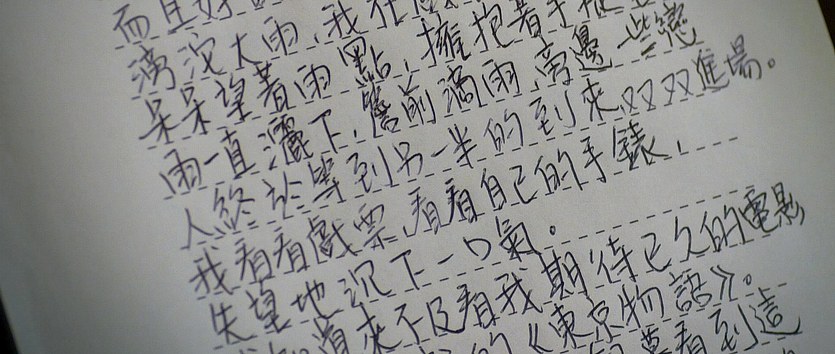 而且好
滂沱大雨，我在
呆呆望着雨點，擁抱着手
雨一直灑下，簷前滴雨，旁邊一些戀
人終於等到另一半的到來，双双進場。
我看看戲票，看看自己的手錶，
失望地沉下一口氣。
道來不及看我期待已久的電影
的《東京物語》。
看到這